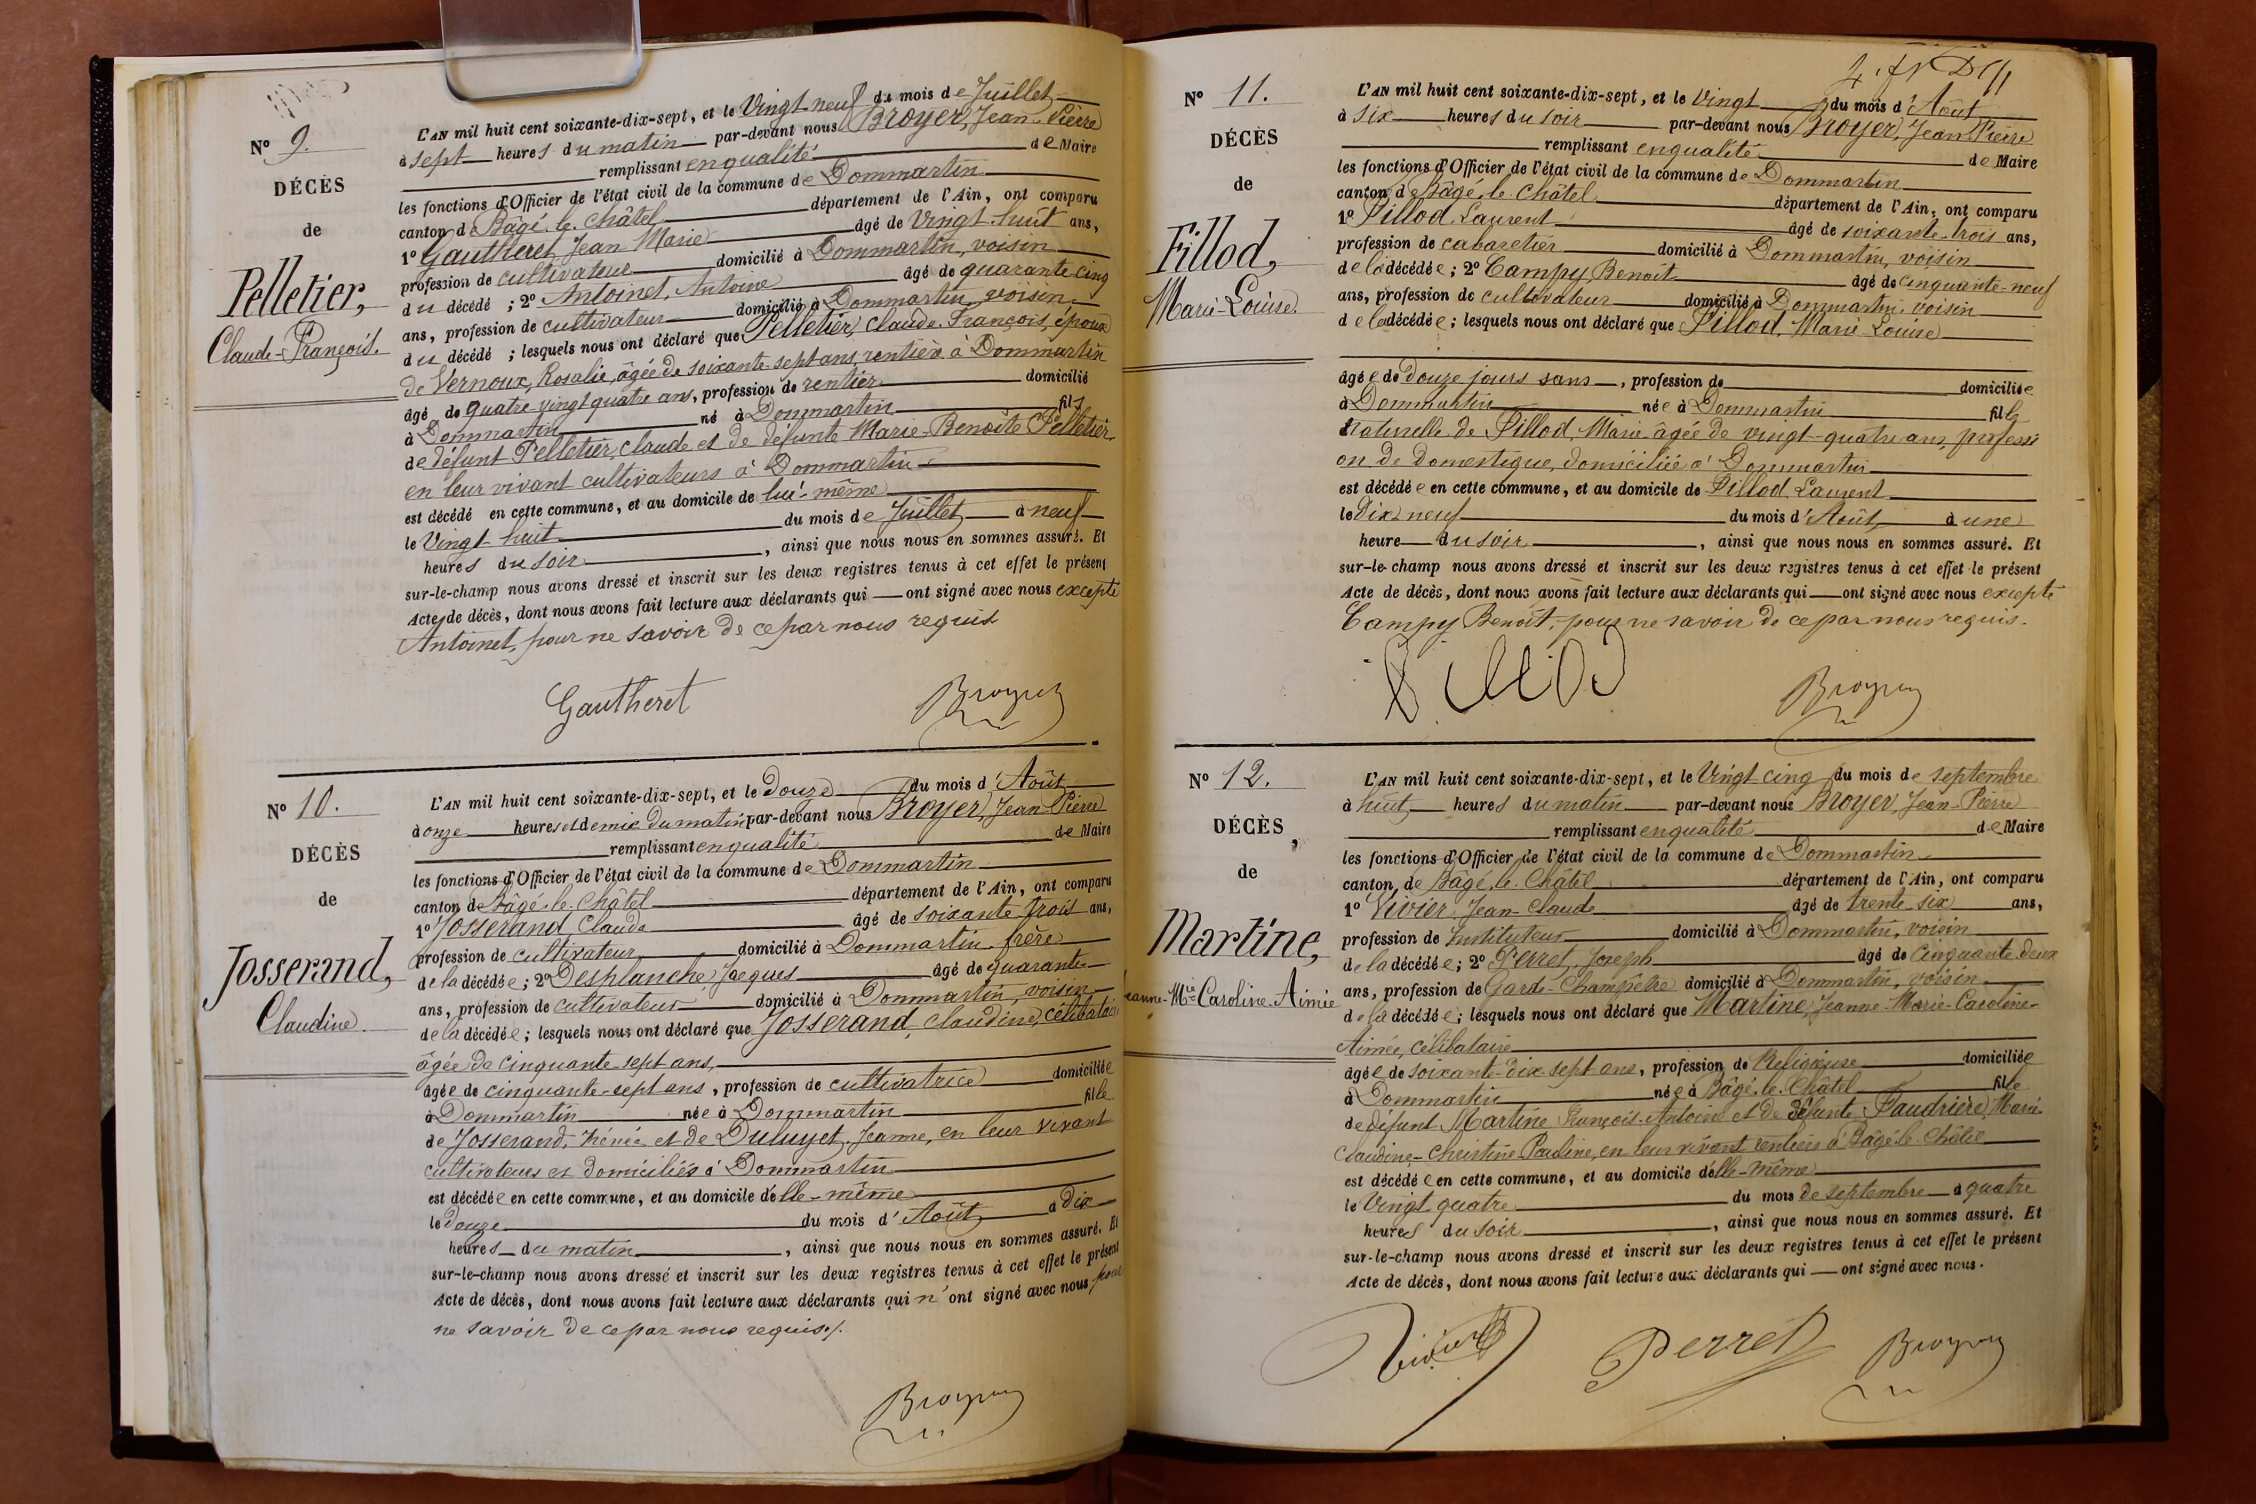 N° 9.
DÉCÈS
de
Pelletier,
Claude-François.
L'AN mil huit cent soixante-dix-sept, et le Vingt-neuf du mois de Juillet
à sept heures du matin par-devant nous Broyer, Jean-Pierre
remplissant en qualité de Maire
les fonctions d'Officier de l'état civil de la commune de Dommartin
canton de Bâgé-le-Châtel département de l'Ain, ont comparu
1° Gautheret Jean Marie âgé de vingt-huit ans,
profession de cultivateur domicilié à Dommartin, voisin
du décédé ; 2° Antoinet, Antoine âgé de quarante-cinq
ans, profession de cultivateur domicilié à Dommartin, voisin
du décédé ; lesquels nous ont déclaré que Pelletier, Claude-François, époux
de Vernoux, Rosalie, âgée de soixante-sept ans, rentière à Dommartin
âgé de quatre vingt quatre ans, profession de rentier domicilié
à Dommartin né à Dommartin fils
de défunt Pelletier, Claude et de défunte Marie-Benoîte Pelletier
en leur vivant cultivateurs à Dommartin
est décédé en cette commune, et au domicile de lui-même
le Vingt-huit du mois de Juillet à neuf
heures du soir, ainsi que nous nous en sommes assuré. Et
sur-le-champ nous avons dressé et inscrit sur les deux registres tenus à cet effet le présent
Acte de décès, dont nous avons fait lecture aux déclarants qui ont signé avec nous excepté
Antoinet, pour ne savoir de ce par nous requis
Gautheret Broyer
N° 10.
DÉCÈS
de
Josserand,
Claudine.
L'AN mil huit cent soixante-dix-sept, et le douze du mois d'Août
à onze heures et demie du matin par-devant nous Broyer, Jean-Pierre
remplissant en qualité de Maire
les fonctions d'Officier de l'état civil de la commune de Dommartin
canton de Bâgé-le-Châtel département de l'Ain, ont comparu
1° Josserand Claude âgé de soixante trois ans,
profession de cultivateur domicilié à Dommartin, frère
de la décédée ; 2° Desplanche, Jacques âgé de quarante
ans, profession de cultivateur domicilié à Dommartin, voisin
de la décédée ; lesquels nous ont déclaré que Josserand, Claudine, célibataire
âgée de cinquante-sept ans,
âgée de cinquante-sept ans, profession de cultivatrice domiciliée
à Dommartin née à Dommartin fille
de Josserand, et de Duluyet, Jeanne, en leur vivant
cultivateurs et domiciliés à Dommartin
est décédée en cette commune, et au domicile d'elle-même
le douze du mois d'Août à dix
heures du matin, ainsi que nous nous en sommes assuré. Et
sur-le-champ nous avons dressé et inscrit sur les deux registres tenus à cet effet le présent
Acte de décès, dont nous avons fait lecture aux déclarants qui n'ont signé avec nous pour
ne savoir de ce par nous requis /.
Broyer
N° 11.
DÉCÈS
de
Fillod,
Marie-Louise.
L'AN mil huit cent soixante-dix-sept, et le Vingt du mois d'Août
à six heures du soir par-devant nous Broyer, Jean Pierre
remplissant en qualité de Maire
les fonctions d'Officier de l'état civil de la commune de Dommartin
canton de Bâgé-le-Châtel département de l'Ain, ont comparu
1° Fillod, Laurent âgé de soixante-trois ans,
profession de cabaretier domicilié à Dommartin, voisin
de la décédée ; 2° Campy, Benoit âgé de cinquante-neuf
ans, profession de cultivateur domicilié à Dommartin, voisin
de la décédée ; lesquels nous ont déclaré que Fillod, Marie-Louise
âgée de douze jours sans, profession de domiciliée
à Dommartin née à Dommartin fille
naturelle de Fillod, Marie âgée de vingt-quatre ans, professi
on de domestique, domiciliée à Dommartin
est décédée en cette commune, et au domicile de Fillod, Laurent
le dix-neuf du mois d'Août à une
heure du soir, ainsi que nous nous en sommes assuré. Et
sur-le-champ nous avons dressé et inscrit sur les deux registres tenus à cet effet le présent
Acte de décès, dont nous avons fait lecture aux déclarants qui ont signé avec nous excepté
Campy Benoît, pour ne savoir de ce par nous requis.
Fillod Broyer
N° 12.
DÉCÈS
de
Martine,
Jeanne-Mie Caroline-Aimée
L'AN mil huit cent soixante-dix-sept, et le Vingt cinq du mois de septembre
à huit heures du matin par-devant nous Broyer, Jean-Pierre
remplissant en qualité de Maire
les fonctions d'Officier de l'état civil de la commune de Dommartin
canton de Bâgé-le-Châtel département de l'Ain, ont comparu
1° Vivier, Jean-Claude âgé de trente-six ans,
profession de Instituteur domicilié à Dommartin, voisin
de la décédée ; 2° Perret, Joseph âgé de cinquante deux
ans, profession de Garde-Champêtre domicilié à Dommartin, voisin
de la décédée ; lesquels nous ont déclaré que Martine, Jeanne-Marie-Caroline-
Aimée, célibataire
âgée de soixante-dix-sept ans, profession de Religieuse domiciliée
à Dommartin née à Bâgé-le-Châtel fille
de défunt Martine François-Antoine et de défunte Faudrière, Marie-
Claudine-Christine-Pauline, en leur vivant rentiers à Bâgé-le-Châtel
est décédée en cette commune, et au domicile d'elle-même
le Vingt quatre du mois de septembre à quatre
heures du soir, ainsi que nous nous en sommes assuré. Et
sur-le-champ nous avons dressé et inscrit sur les deux registres tenus à cet effet le présent
Acte de décès, dont nous avons fait lecture aux déclarants qui ont signé avec nous.
Vivier Perret Broyer